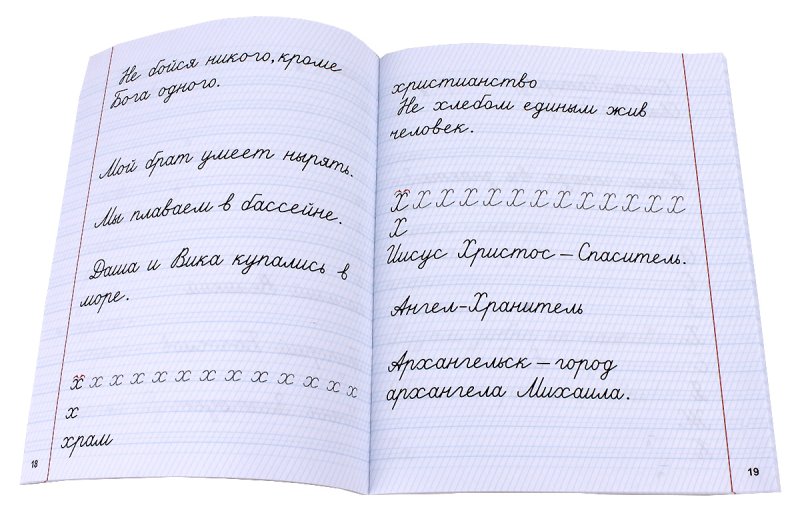 Не бойся никого, кроме
Бога одного.
Мой брат умеет нырять.
Мы плаваем в бассейне.
Даша и Вика купались в
море.
х х х х х х х х х х х х х
х
храм
18
христианство
Не хлебом единым жив
человек.
Х Х Х Х Х Х Х Х Х Х Х Х Х
Х
Иисус Христос – Спаситель.
Ангел-Хранитель
Архангельск – город
архангела Михаила.
19